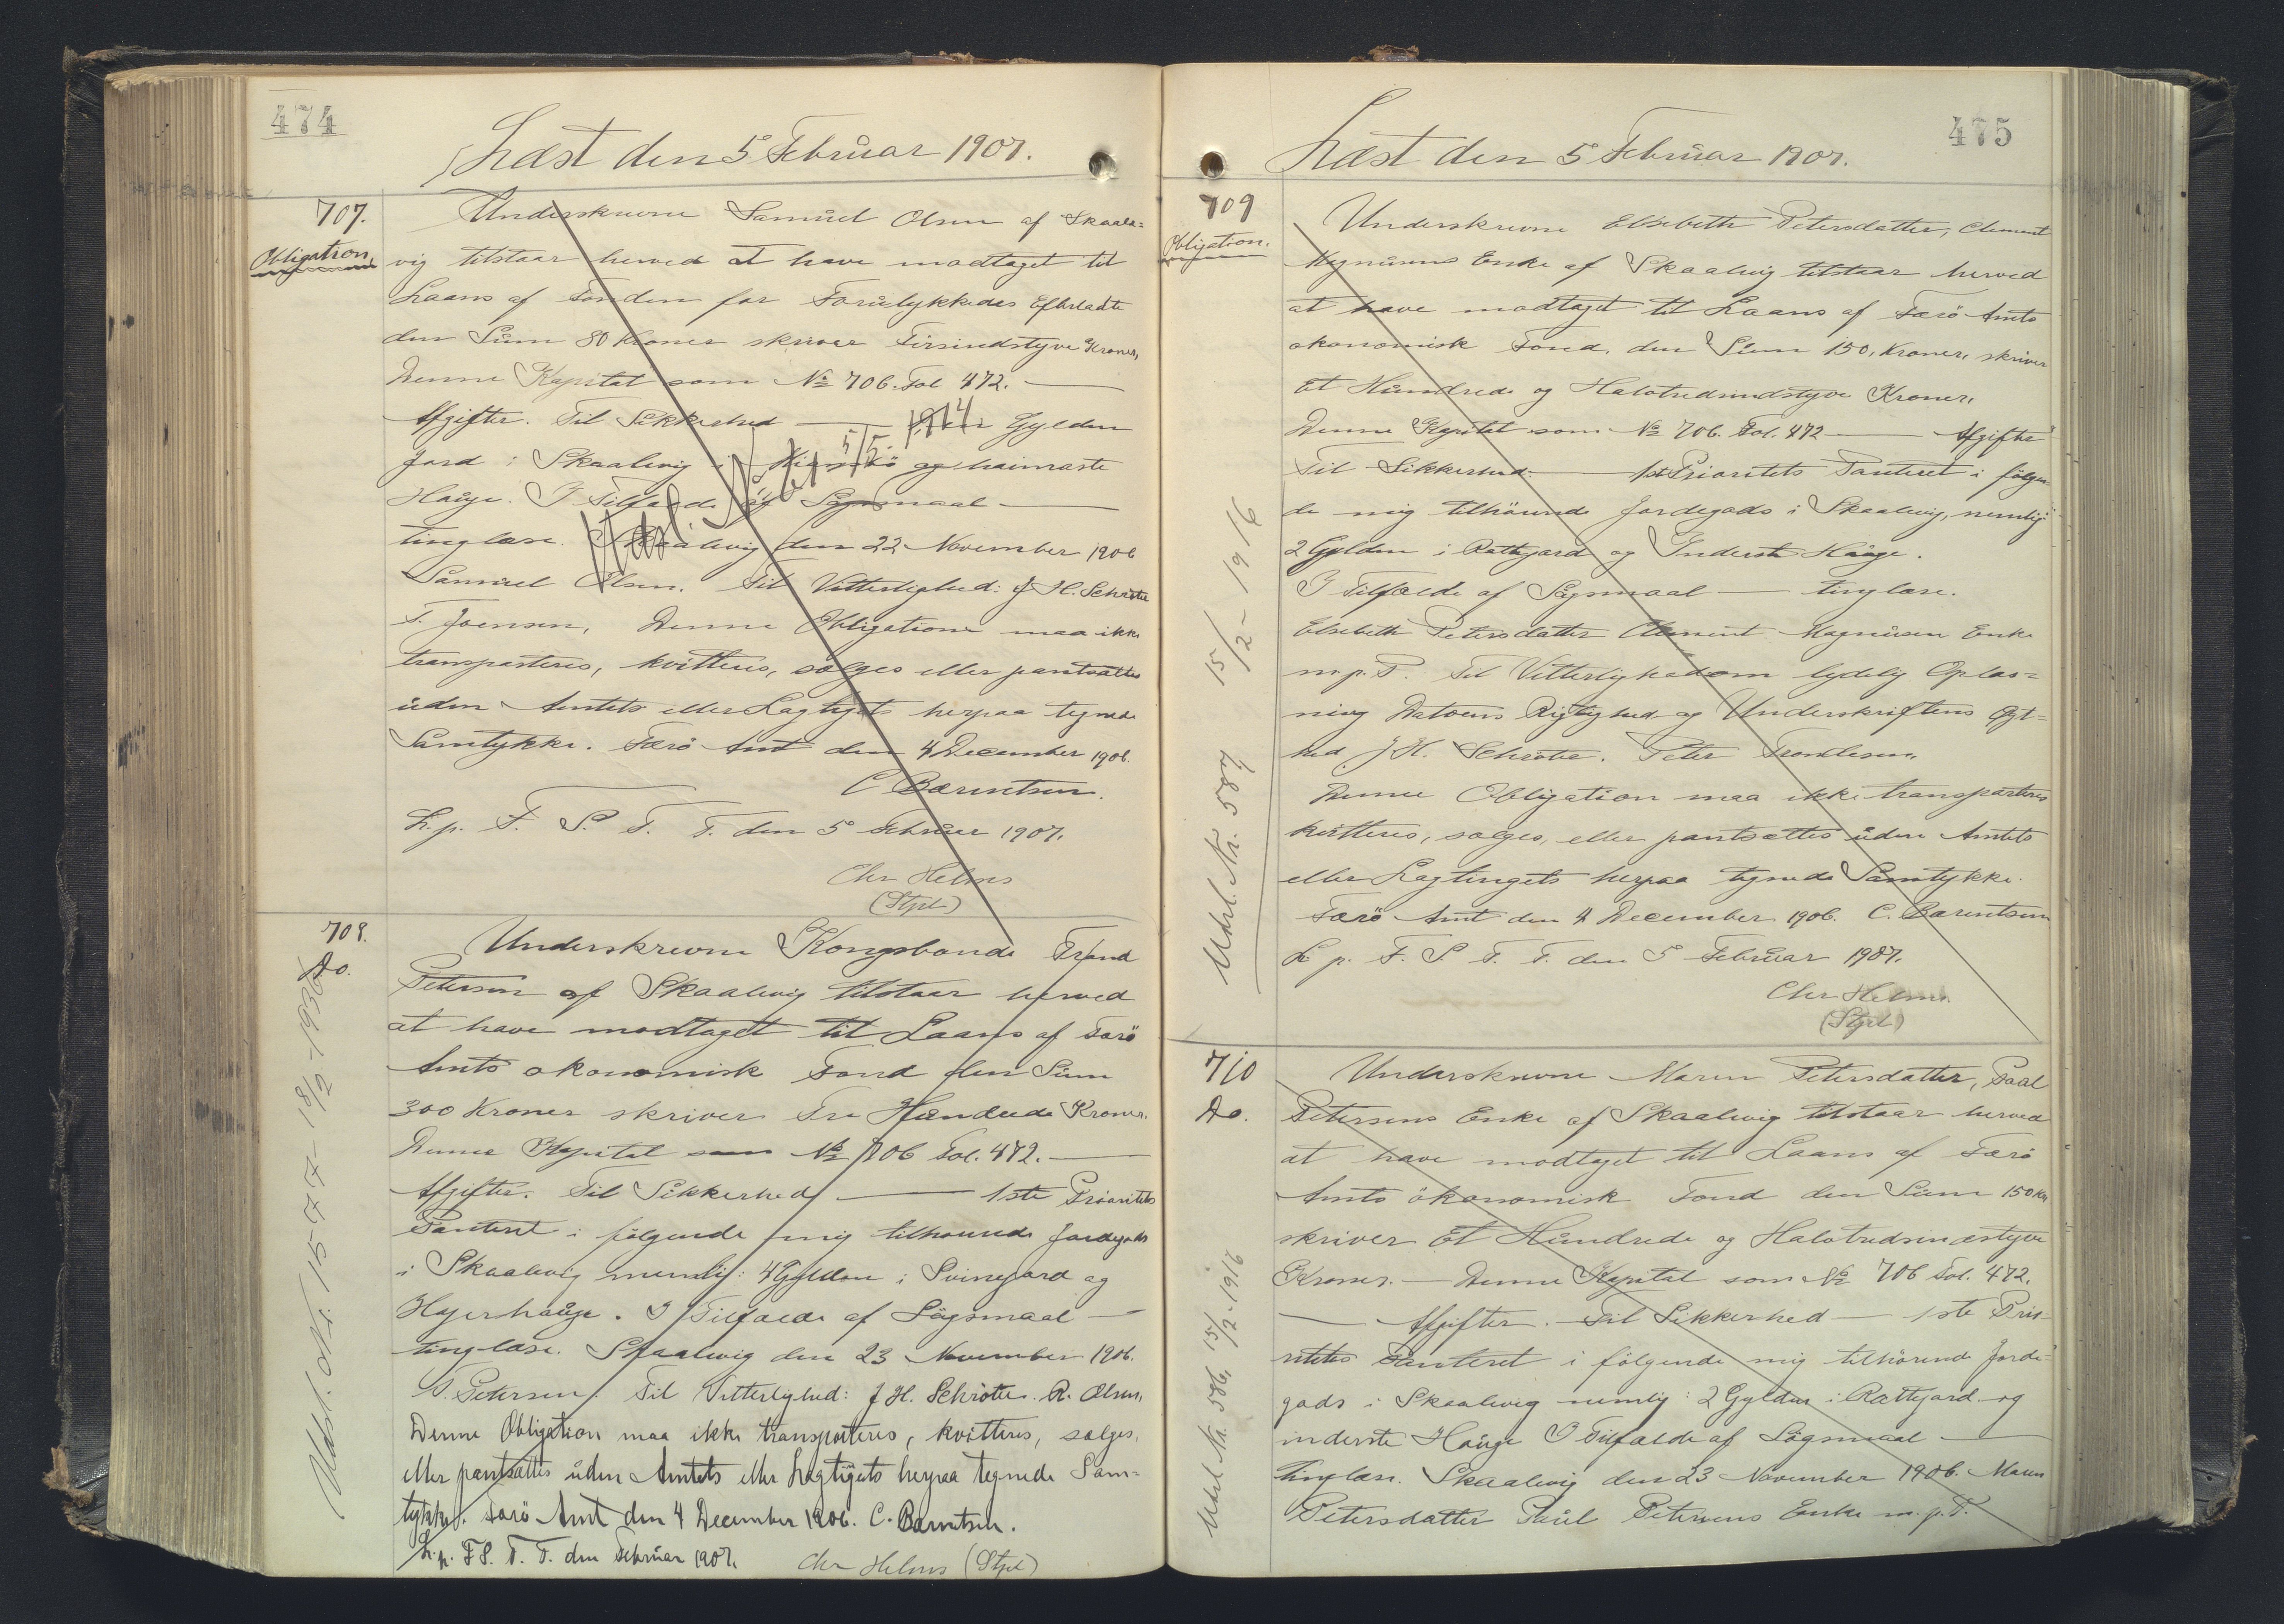 474
Læst den 5 Februar 1907.
707.
Obligation,
Underskrevne Samuel Olsen af Skaale=
vig tilstaar herved at have modtaget til
Laans af Fonden for Forulykkedes Efterladte
den Sum 80 Kroner skriver Firsindstyve Kroner,
Denne Kapital som № 706. Fol 472. —
Afgifter. Til Sikkerhed — Gylden
Jord i Skaalevig i og haimaste
Hauge. I Tilfælde af Søgsmaal —
tinglæse. Skaalevig den 22 November 1906
Samuel Olsen. Til Vitterlighed: J H. Schröter
T. Joensen, Denne Obligation maa ikke
transporteres, kvitteres, sælges eller pantsættes
uden Amtets eller Lagtingets herpaa tegnede
Samtykke. Færö Amt den 4 December 1906.
C Bærentsen.
L. p. F. S. T. T. den 5 Februar 1907.
Chr Helms
(Stpl)
Udsl. 5/5 1914
708.
Do.
Underskrevne Kongsbonde Trond
Petersen af Skaalevig tilstaar herved
at have modtaget til Laans af Færö
Amts økonomisk Fond den Sum
300 Kroner skriver Tre Hundrede Kroner.
Denne Kapital som № 706 Fol. 472. —
Afgifter. Til Sikkerhed — 1ste Prioritets
Panteret i følgende mig tilhørende Jordegods
i Skaalevig nemlig: 4 Gylden i Svinegard og
Hejerhauge. I Tilfælde af Søgsmaal —
tinglæse. Skaalevig den 23 November 1906.
T. Petersen. Til Vitterlighed: J H. Schröter. R. Olsen,
Denne Obligation maa ikke transporteres, kvitteres, sælges,
eller pantsættes uden Amtets eller Lagtingets herpaa tegnede Sam=
tykke. Færö Amt den 4 December 1906. C. Bærentsen.
L. p. F S. T. T. den Februar 1907. Chr Helms (Stpl)
Udsl. Nr. 1577- 18/2-1936
475
Læst den 5 Februar 1907.
709
Obligation.
Underskrevne Elsebeth Petersdatter, Clement
Magnussens Enke af Skaalevig tilstaar herved
at have modtaget til Laans af Færö Amts
økonomisk Fond, den Sum 150, Kroner, skriver
Et Hundrede og Halvtredsindstyve Kroner,
Denne Kapital som № 706. Fol. 472 — Afgifter
Til Sikkerhed. — 1ste Prioritets Panteret i følgen-
de mig tilhörende Jordegods i Skaalevig, nemlig
2 Gylden i Rattgard og Inderste Hauge.
I Tilfælde af Søgsmaal — tinglæse.
Elsebeth Petersdatter Clement Magnusen Enke
m. p. P. Til Vitterlighed om lydelig Oplæs=
ning Datoens Rigtighed og Underskriftens Ægt=
hed J H. Schröter. Peter Trondesen,
Denne Obligation maa ikke transporteres
kvitteres, sælges, eller pantsættes uden Amtets
eller Lagtingets herpaa tegnede Samtykke.
Færö Amt den 4 December 1906. C. Bærentsen
L p. F. S. T. T. den 5 Februar 1907.
Chr Helms.
(Stpl)
Udsl. Nr. 587 15/2-1916
710
Do.
Underskrevne Maren Petersdatter, Paal
Petersens Enke af Skaalevig tilstaar herved
at have modtaget til Laans af Færö
Amts ökonomisk Fond den Sum 150 Kr
skriver Et Hundrede og Halvtredsindstyve
Kroner. — Denne Kapital som № 706 Fol. 472.
— Afgifter. Til Sikkerhed — 1ste Prio-
ritets Panteret i følgende mig tilhørende Jorde=
gods i Skaalevig nemlig: 2 Gylden i Rattgard og
inderste Hauge I Tilfælde af Søgsmaal —
tinglæse. Skaalevig den 23 November 1906. Maren
Petersdatter Paul Petersens Enke m. p. P.
Udsl Nr. 586, 15/2-1916